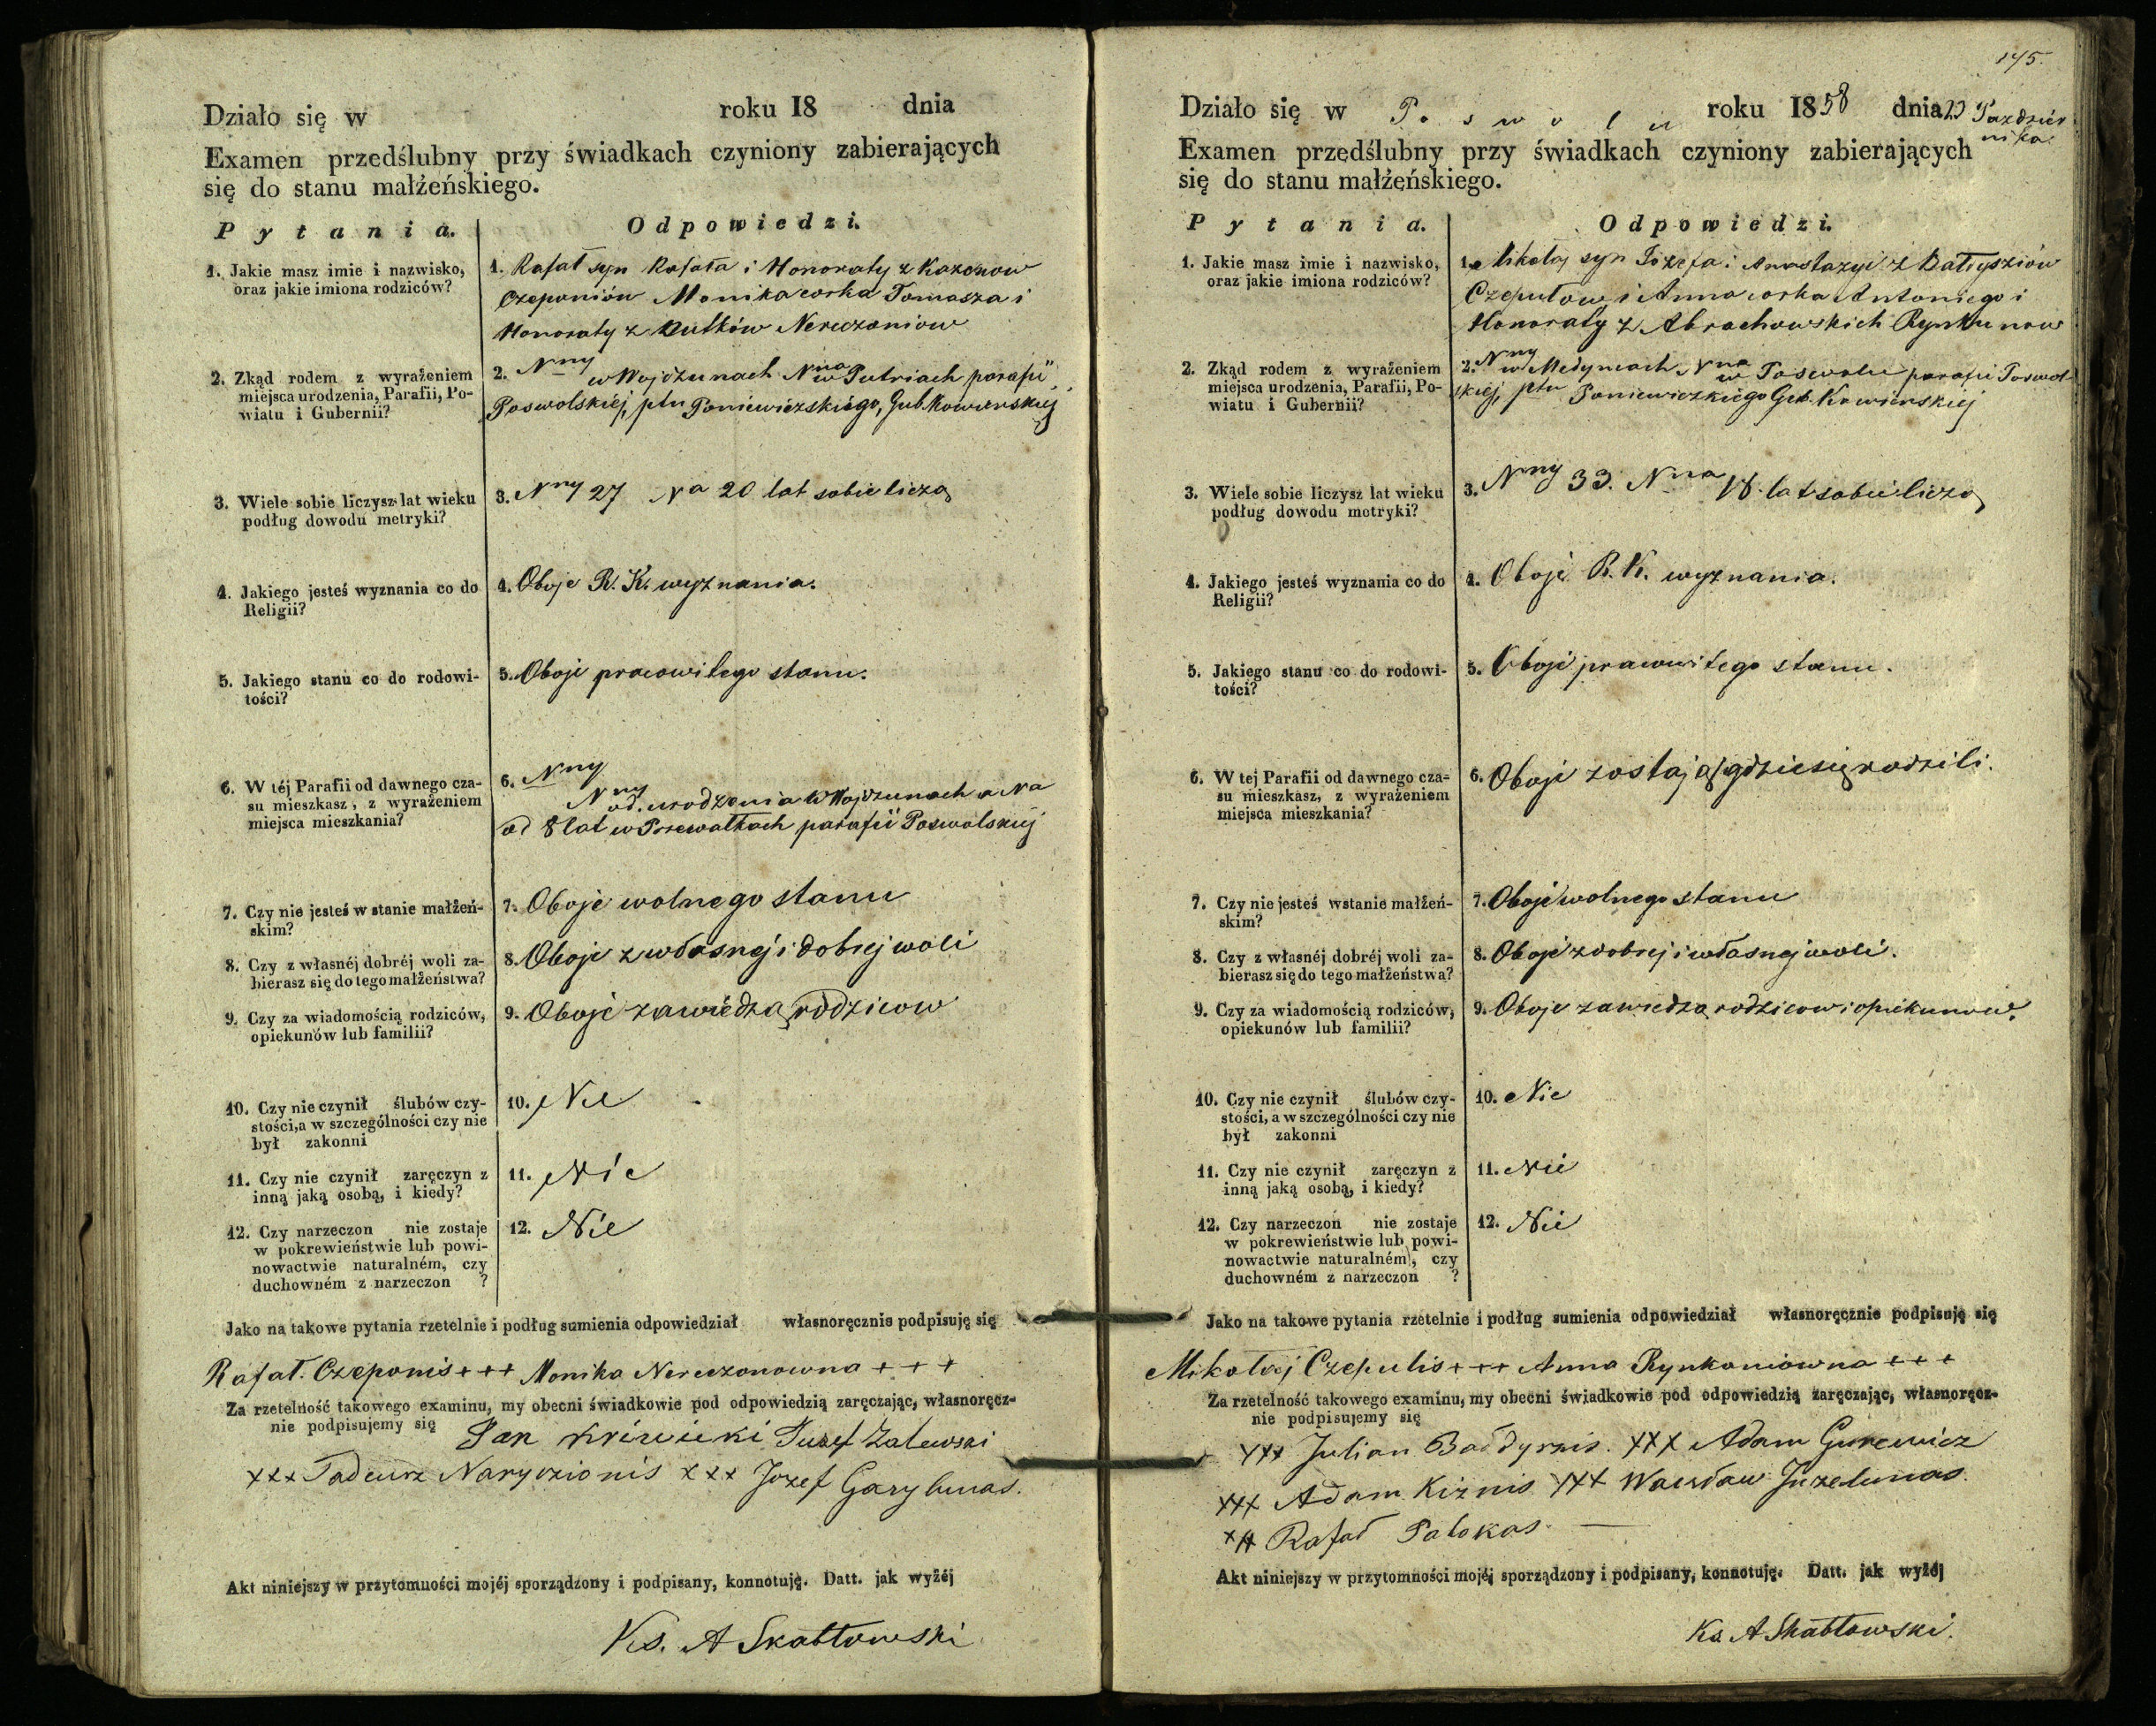 Działo się w roku 18 dnia
Examen przedślubny przy świadkach czyniony zabierających
się do stanu małżeńskiego.
Pytania. Odpowiedzi.
1. Jakie masz imie i nazwisko,
oraz jakie imiona rodziców?
1. Rafał syn Rafała i Honoraty z Kazonow
Czeponiów Monika corka Tomasza i
Honoraty z Butków Nereczoniow
2. Zkąd rodem z wyrażeniem
miejsca urodzenia, Parafii, Po-
wiatu i Gubernii?
2. Nny w Wojdzunach Nna w Putriach parafii
Poswolskiej, ptu Poniewiezskiégo, Gub. Kowienskiej
3. Wiele sobie liczysz lat wieku
podług dowodu metryki?
3. Nny 27 Na 20 lat sobie liczą
4. Jakiego jesteś wyznania co do
Religii?
4. Oboje R. K. wyznania.
5. Jakiego stanu co do rodowi-
tości?
5. Oboje pracowitego stanu.
6. W téj Parafii od dawnego cza-
su mieszkasz, z wyrażeniem
miejsca mieszkania?
6. Nny
Nny od urodzenia w Wojdzunach a Na
od 8 lat w Przewałkach parafii Poswolskiej
7. Czy nie jesteś w stanie małżeń-
skim?
7. Oboje wolnego stanu
8. Czy z własnéj dobréj woli za-
bierasz się do tego małżeństwa?
8. Oboje z własnej i dobrej woli
9. Czy za wiadomością rodziców,
opiekunów lub familii?
9. Oboje za wiedzą rodzicow
10. Czy nie czynił ślubów czy-
stości, a w szczególności czy nie
był zakonni
10. Nie
11. Czy nie czynił zaręczyn z
inną jaką osobą, i kiedy?
11. Nie
12. Czy narzeczon nie zostaje
w pokrewieństwie lub powi-
nowactwie naturalném, czy
duchowném z narzeczon ?
12. Nie
Jako na takowe pytania rzetelnie i podług sumienia odpowiedział własnoręcznie podpisuję się
Rafał. Czeponis + + + Monika Nereczonowna + + +
Za rzetelność takowego examinu, my obecni świadkowie pod odpowiedzią zaręczając, własnoręcz-
nie podpisujemy się
Jan Kriwicki Juzef Zalewski
xxx Tadeusz Naryczionis xxx Jozef Garylunas.
Akt niniejszy w przytomności mojéj sporządzony i podpisany, konnotuję. Datt. jak wyżéj
Ks. A Skabłowski
145.
Działo się w Poswolu roku 1858 dnia 23 Pazdzier
nika
Examen przedślubny przy świadkach czyniony zabierających
się do stanu małżeńskiego.
Pytania. Odpowiedzi.
1. Jakie masz imie i nazwisko,
oraz jakie imiona rodziców?
1. Mikołaj syn Józefa i Anastazyi z Bałtyszów
Czepułow i Anna corka Antoniego i
Honoraty z Abrachowskich Rynkunow
2. Zkąd rodem z wyrażeniem
miejsca urodzenia, Parafii, Po-
wiatu i Gubernii?
2. Nny w Medyniach Nna w Poswolu parafii Poswol-
skiej, ptu Poniewiezkiego Gub. Kowienskiej
3. Wiele sobie liczysz lat wieku
podług dowodu metryki?
3. Nny 33. Nna 18. lat sobie liczą
4. Jakiego jesteś wyznania co do
Religii?
4. Oboje R. K. wyznania.
5. Jakiego stanu co do rodowi-
tości?
5. Oboje pracowitego stanu.
6. W tej Parafii od dawnego cza-
su mieszkasz, z wyrażeniem
miejsca mieszkania?
6. Oboje zostają gdzie się rodzili.
7. Czy nie jesteś wstanie małżeń-
skim?
7. Oboje wolnego stanu
8. Czy z własnéj dobréj woli za-
bierasz się do tego małżeństwa?
8. Oboje z dobrej i własnej woli.
9. Czy za wiadomością rodziców,
opiekunów lub familii?
9. Oboje za wiedzą rodzicow i opiekunow.
10. Czy nie czynił ślubów czy-
stości, a w szczególności czy nie
był zakonni
10. Nie
11. Czy nie czynił zaręczyn z
inną jaką osobą, i kiedy?
11. Nie
12. Czy narzeczon nie zostaje
w pokrewieństwie lub powi-
nowactwie naturalném, czy
duchowném z narzeczon ?
12. Nie
Jako na takowe pytania rzetelnie i podług sumienia odpowiedział własnoręcznie podpisuję się
Mikołaj Czepulis + + + Anna Rynkoniowna + + +
Za rzetelność takowego examinu, my obecni świadkowie pod odpowiedzią zaręczając, własnoręcz-
nie podpisujemy się
xxx Julian Bałdyrnis. xxx Adam Gurewicz
xxx Adam Kiznis xxx Wacław Juzelunas.
xxx Rafał Palokas.
Akt niniejszy w przytomności mojéj sporządzony i podpisany, konnotuję. Datt. jak wyżéj
Ks. A Skabłowski.